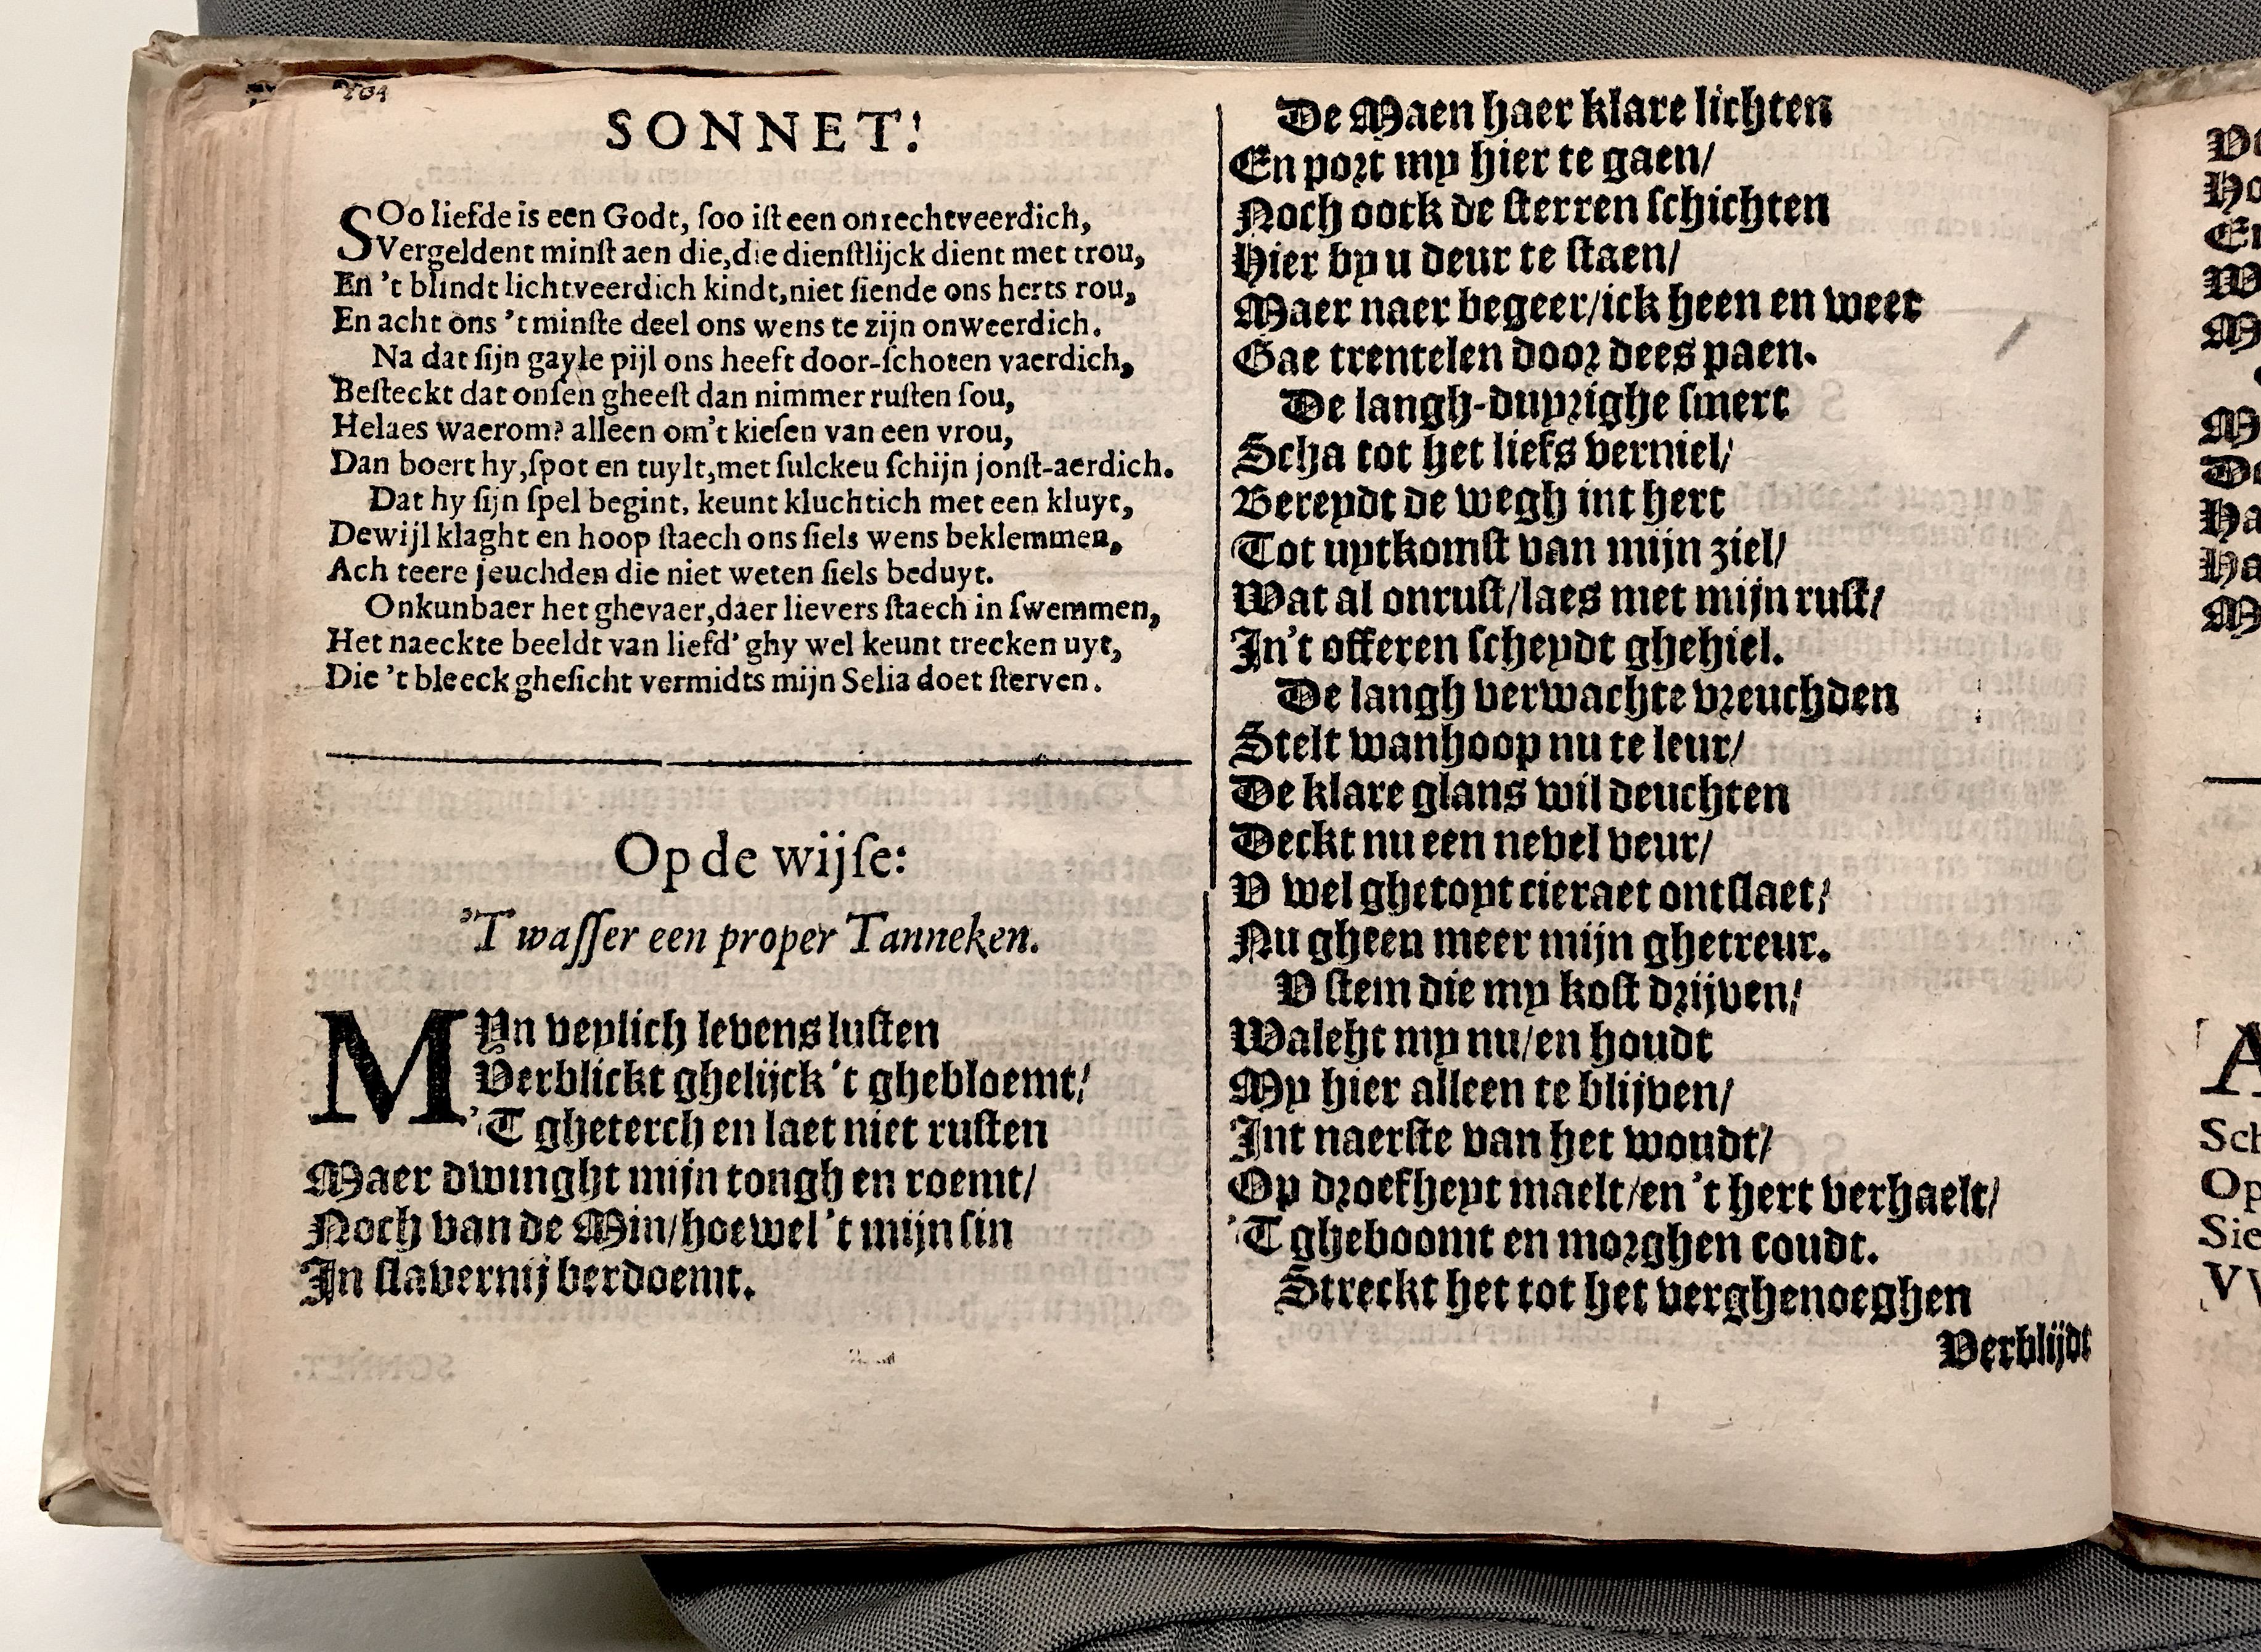 104
SONNET!
SOo liefde is een Godt, ſoo iſt een onrechtveerdich,
Vergeldent minſt aen die, die dienſtlijck dient met trou,
En 't blindt lichtveerdich kindt, niet ſiende ons herts rou,
En acht ons 't minſte deel ons wens te zijn onweerdich.
Na dat ſijn gayle pijl ons heeft door-ſchoten vaerdich,
Beſteckt dat onſen gheeſt dan nimmer ruſten ſou,
Helaes waerom? alleen om't kieſen van een vrou,
Dan boert hy, ſpot en tuylt, met ſulckeu ſchijn jonſt-aerdich.
Dat hy ſijn ſpel begint, keunt kluchtich met een kluyt,
Dewijl klaght en hoop ſtaech ons ſiels wens beklemmen,
Ach teere jeuchden die niet weten ſiels beduyt.
Onkunbaer het ghevaer, daer lievers ſtaech in ſwemmen,
Het naeckte beeldt van liefd' ghy wel keunt trecken uyt,
Die 't bleeck gheſicht vermidts mijn Selia doet ſterven.
Op de wijſe:
'T waſſer een proper Tanneken.
MYn veylich levens luſten
Verblickt ghelijck 't ghebloemt/
'T gheterch en laet niet ruſten
Maer dwinght mijn tongh en roemt/
Noch van de Min/hoewel 't mijn ſin
In ſlavernij verdoemt.
De Maen haer klare lichten
En port my hier te gaen/
Noch oock de ſterren ſchichten
Hier by u deur te ſtaen/
Maer naer begeer/ick heen en weer
Gae trentelen door dees paen.
De langh-duyrighe ſmert
Scha tot het liefs verniel/
Bereydt de wegh int hert
Tot uytkomſt van mijn ziel/
Wat al onruſt/laes met mijn ruſt/
In't offeren ſcheydt ghehiel.
De langh verwachte vreuchden
Stelt wanhoop nu te leur/
De klare glans wil deuchten
Deckt nu een nevel veur/
V wel ghetoyt cieraet ontſlaet/
Nu gheen meer mijn ghetreur.
V ſtem die my koſt drijven/
Waleht my nu/en houdt
My hier alleen te blijven/
Int naerſte van het woudt/
Op droefheyt maelt/en 't hert verhaelt/
'T gheboomt en morghen coudt.
Streckt het tot het verghenoeghen
Verblijdt